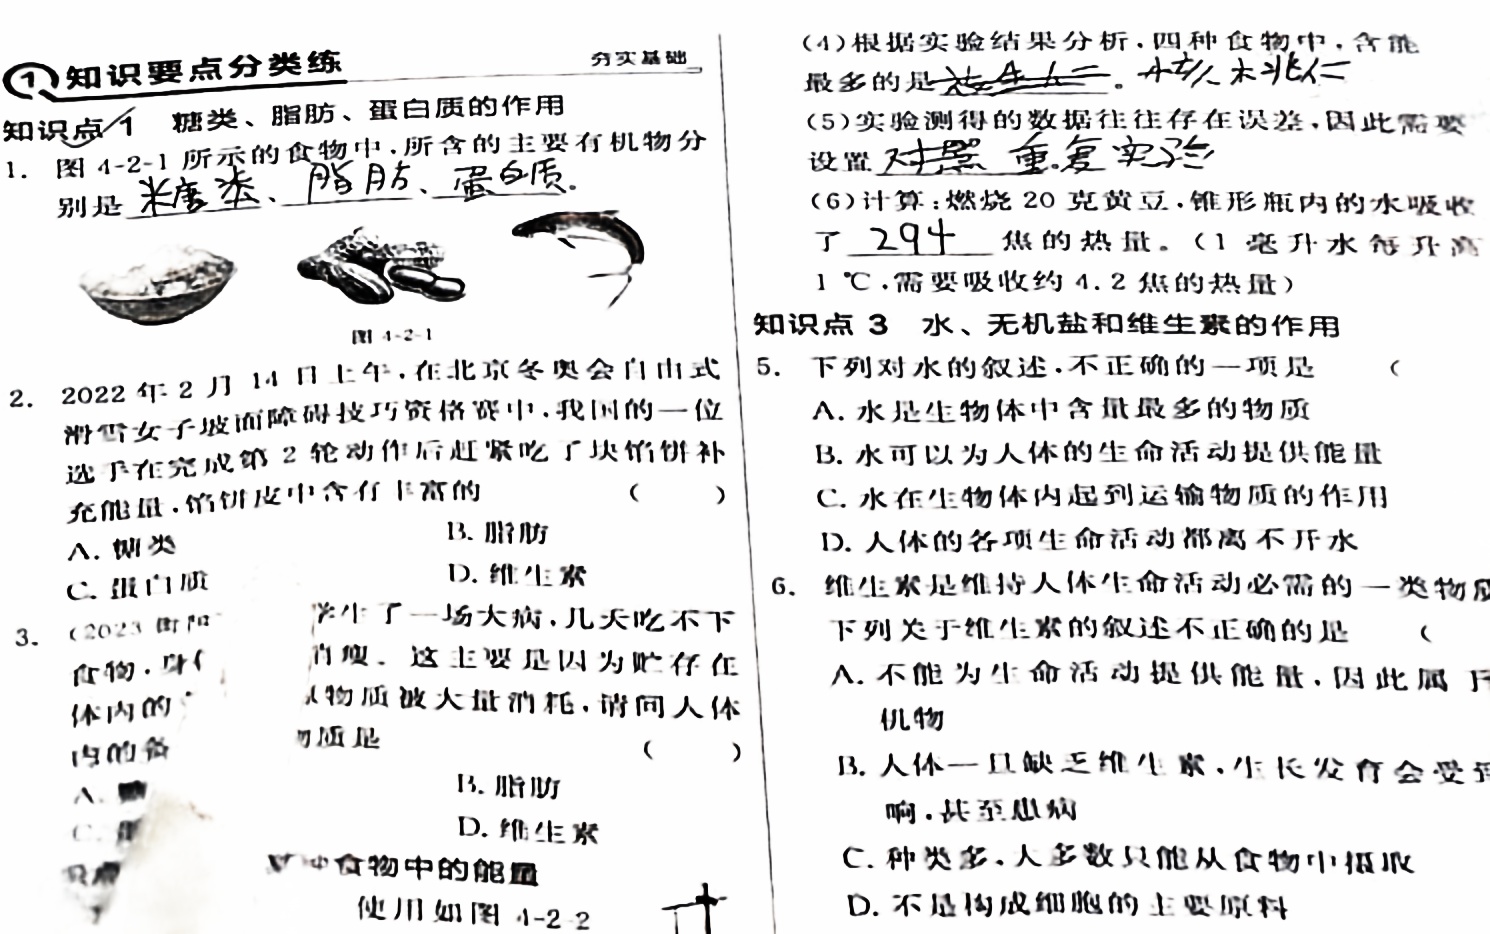 1 知识要点分类练 夯实基础
知识点1 糖类、脂肪、蛋白质的作用
1. 图4-2-1所示的食物中,所含的主要有机物分
别是 糖类、脂肪、蛋白质.
图4-2-1
2. 2022年2月14日上午,在北京冬奥会自由式
滑雪女子坡面障碍技巧资格赛中,我国的一位
选手在完成第2轮动作后赶紧吃了块馅饼补
充能量,馅饼皮中含有丰富的 ( )
A. 糖类 B. 脂肪
C. 蛋白质 D. 维生素
3. (2023 衡阳
学生了一场大病,几天吃不下
食物,身 消瘦。这主要是因为贮存在
体内的 物质被大量消耗,请问人体
内的备 物质是 ( )
A. 糖 B. 脂肪
C. 蛋 D. 维生素
食物中的能量
使用如图4-2-2
(4)根据实验结果分析,四种食物中,含能
最多的是 。核桃仁
(5)实验测得的数据往往存在误差,因此需要
设置 对照 重复实验
(6)计算:燃烧20克黄豆,锥形瓶内的水吸收
了 294 焦的热量。(1毫升水每升高
1℃,需要吸收约4.2焦的热量)
知识点3 水、无机盐和维生素的作用
5. 下列对水的叙述,不正确的一项是 (
A. 水是生物体中含量最多的物质
B. 水可以为人体的生命活动提供能量
C. 水在生物体内起到运输物质的作用
D. 人体的各项生命活动都离不开水
6. 维生素是维持人体生命活动必需的一类物质
下列关于维生素的叙述不正确的是 (
A. 不能为生命活动提供能量,因此属于
机物
B. 人体一旦缺乏维生素,生长发育会受到
响,甚至患病
C. 种类多,大多数只能从食物中摄取
D. 不是构成细胞的主要原料